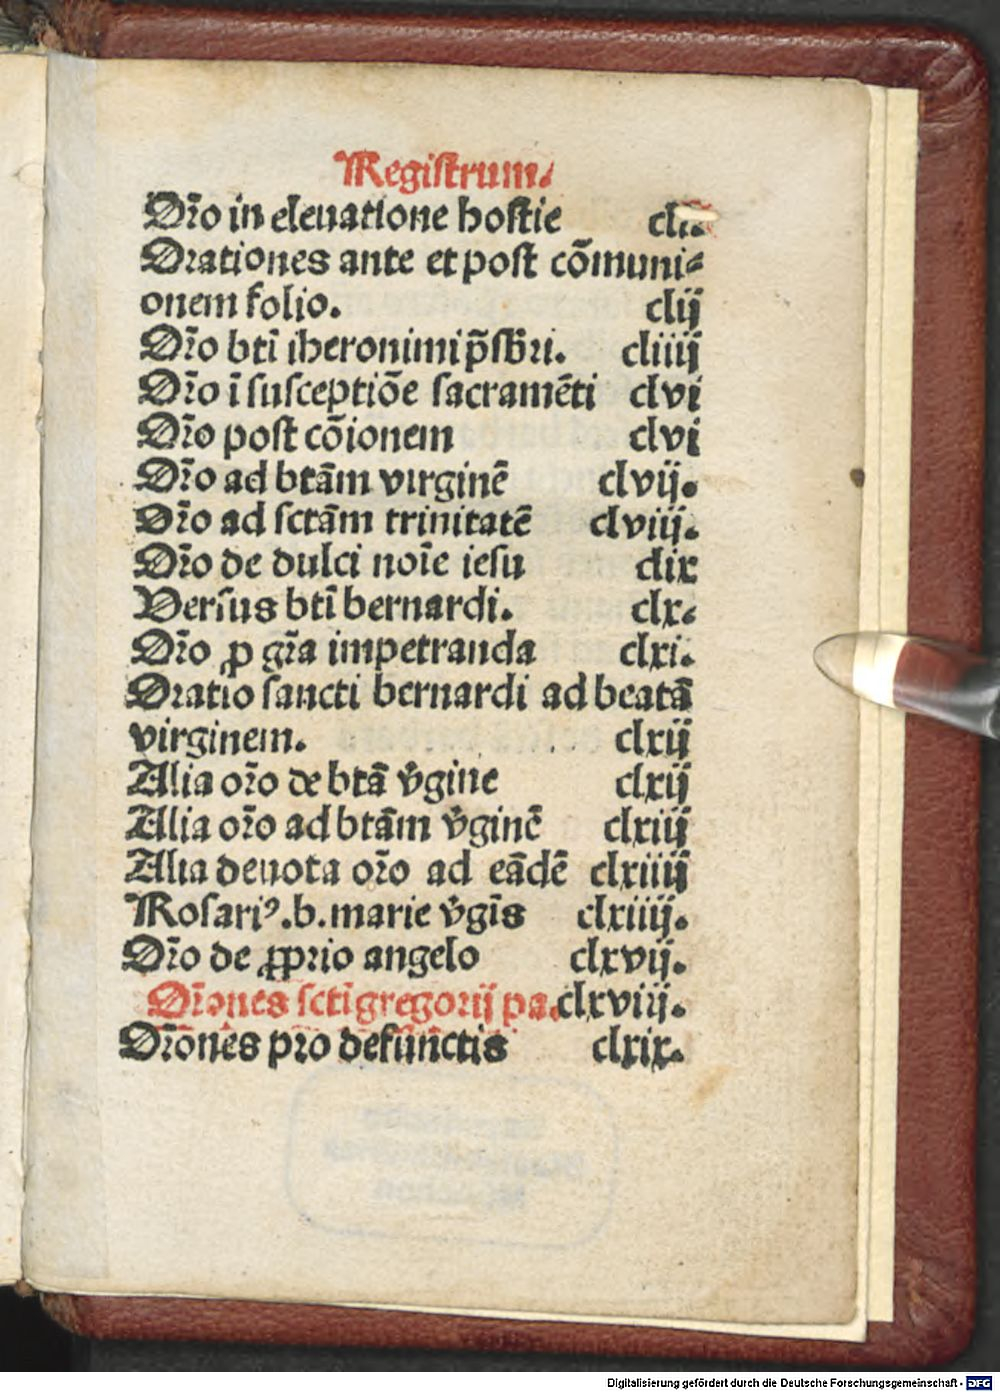 Registrum.
Or̄o in eleuatione hostie
Orationes ante et post cōmuni⸗
onem folio. clij
Or̄o bti̅ iheronimi p̄sb̅ri. cliiij
Or̄o ī susceptiōe sacramēti clvi
Or̄o post cōionem clvi
Or̄o ad btām virginē clvij.
Or̄o ad sctām trinitatē clviij.
Or̄o de dulci noīe iesu clix
Versus bti̅ bernardi. clx.
Or̄o ꝓ gr̄a impetranda clxi.
Oratio sancti bernardi ad beatā
virginem. clxij
Alia or̄o de btā v̄gine clxij
Alia or̄o ad btām v̄ginē clxiij
Alia deuota or̄o ad eādē clxiiij
Rosariꝰ .b. marie v̄gīs clxiiij.
Or̄o de ꝓprio angelo clxvij.
Or̄ones scti̅ gregorij pa. clxviij.
Or̄ones pro defunctis clxix.
Digitalisierung gefördert durch die Deutsche Forschungsgemeinschaft - DFG